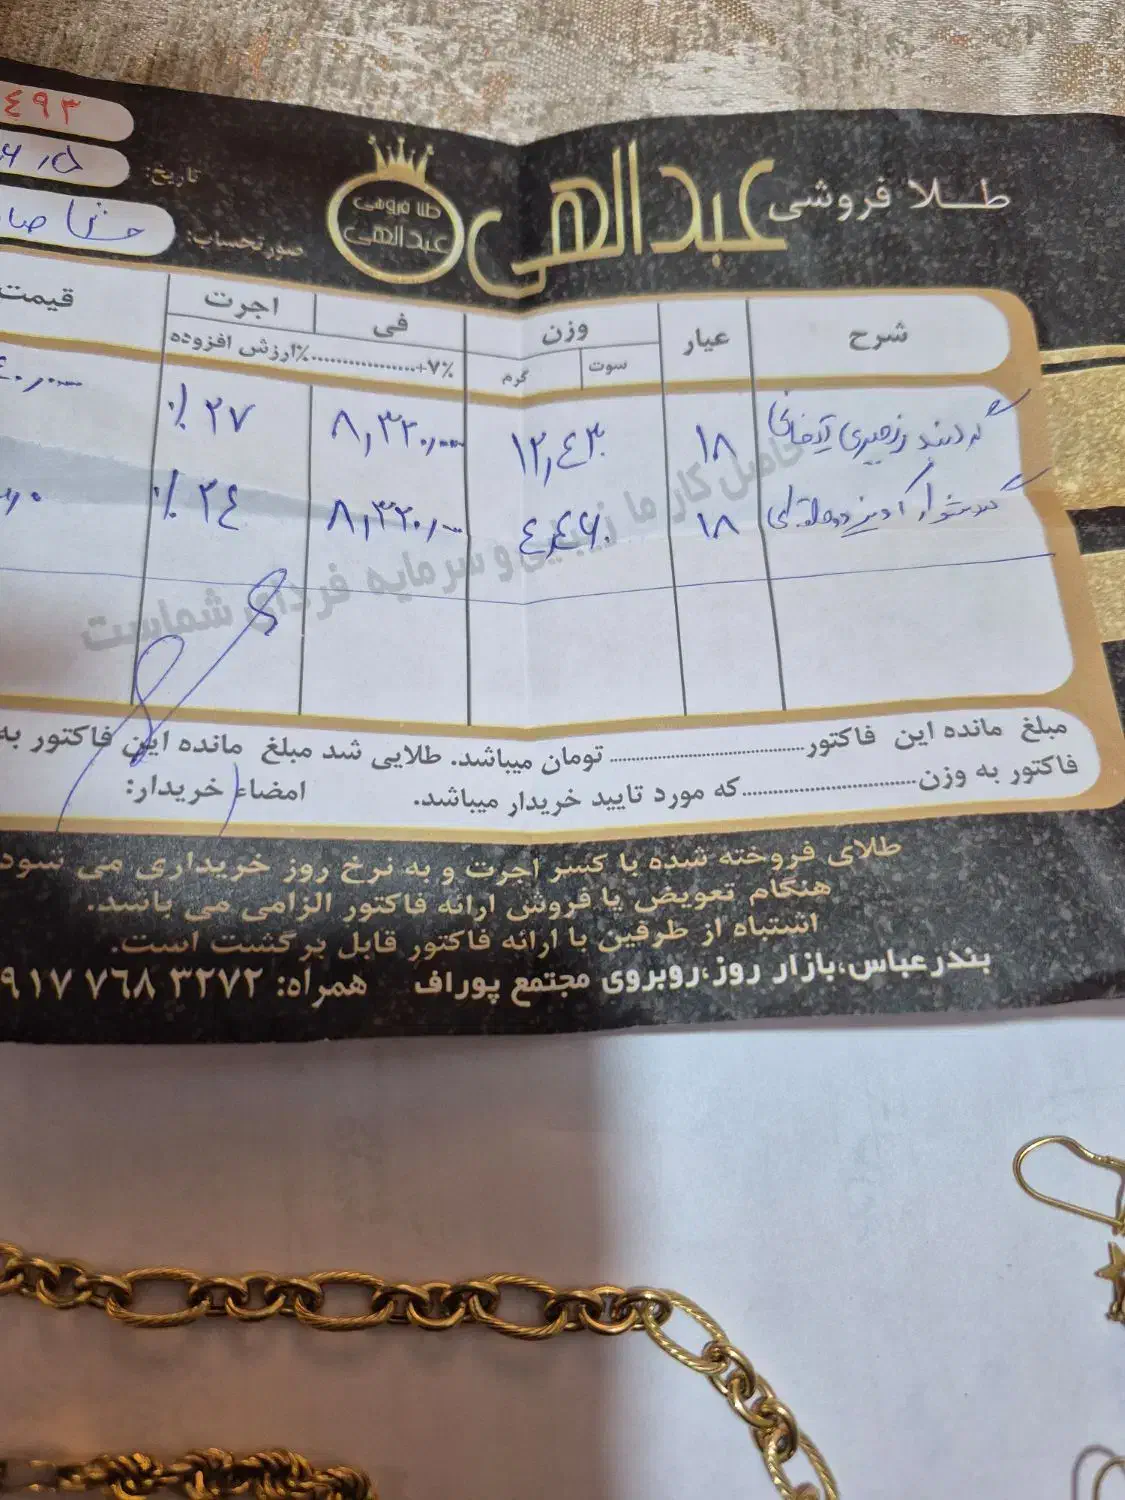 ٤٩٣
طلا فروشی عبدالهی
طلا فروشی
عبدالهی
تاریخ:
صورتحساب:
شرح عیار وزن فی اجرت قیمت
سوت گرم ٪۷+ ٪ارزش افزوده
گردنبند زنجیری ۱۸ ۱۲,٤۳۰ ۸,۳۲۰,۰۰۰ ٪۲۷
گوشواره آویز دو حلقه ای ۱۸ ٤,٤۶۰ ۸,۳۲۰,۰۰۰ ٪۲٤
حاصل کار ما زیبایی و سرمایه فردای شماست
مبلغ مانده این فاکتور تومان میباشد. طلایی شد مبلغ مانده این فاکتور به
فاکتور به وزن که مورد تایید خریدار میباشد. امضاء خریدار:
طلای فروخته شده با کسر اجرت و به نرخ روز خریداری می شود
هنگام تعویض یا فروش ارائه فاکتور الزامی می باشد.
اشتباه از طرفین با ارائه فاکتور قابل برگشت است.
بندرعباس،بازار روز،روبروی مجتمع پوراف همراه: ۹۱۷ ۷۶۸ ۳۲۷۲